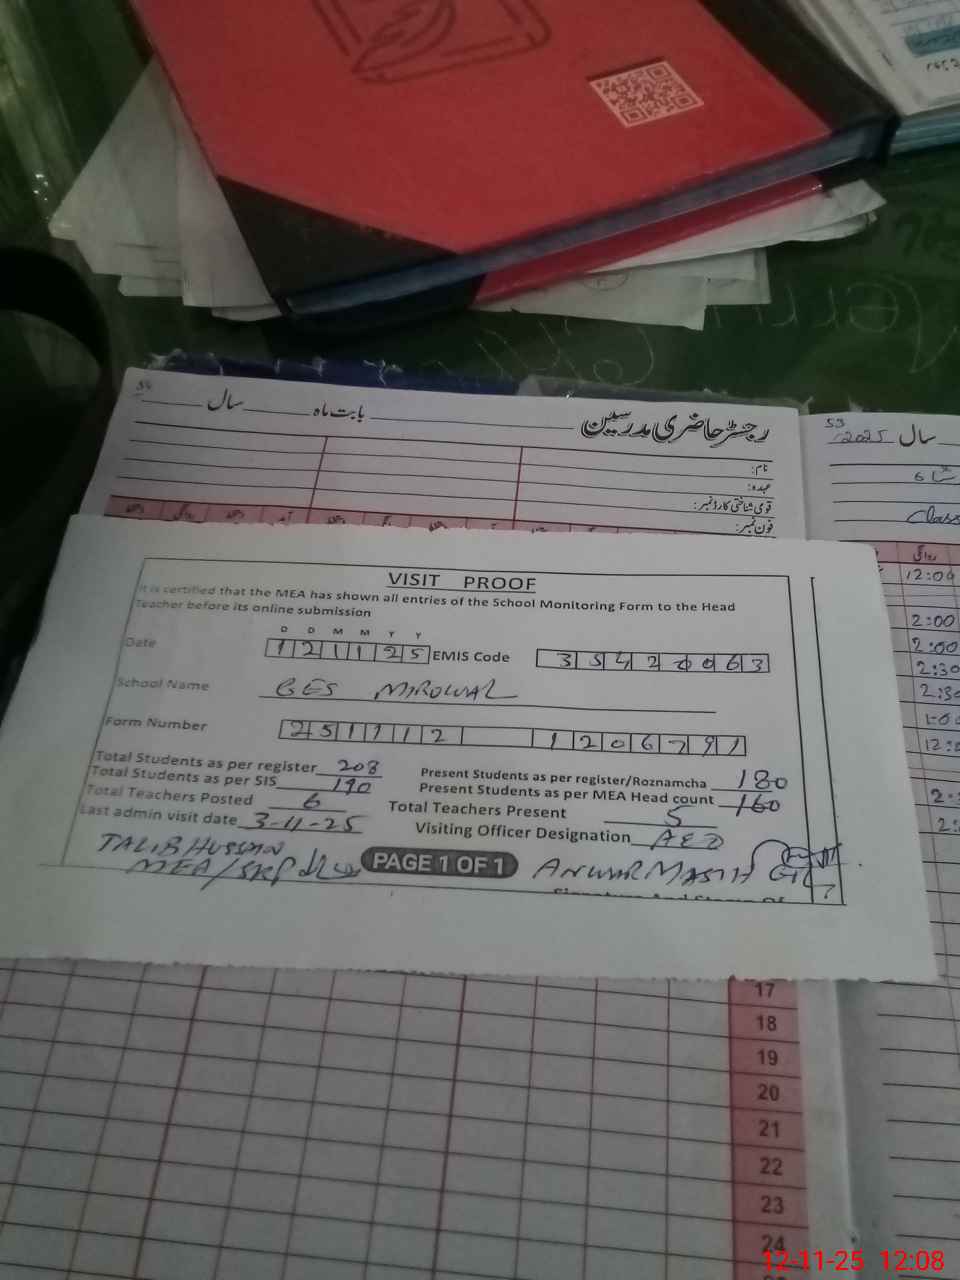 54
رجسٹر حاضری مدرسین بابت ماہ سال
نام:
عہدہ:
قومی شناختی کارڈ نمبر:
فون نمبر:
53
سال 2025
Class
روانگی
12:00
2:00
2:00
2:30
2:30
1:00
VISIT PROOF
It is certified that the MEA has shown all entries of the School Monitoring Form to the Head
Teacher before its online submission
D D M M Y Y
Date 121125 EMIS Code 35420063
School Name GES MIROWAL
Form Number 251112 1206791
Total Students as per register 208 Present Students as per register/Roznamcha 180
Total Students as per SIS 190 Present Students as per MEA Head count 160
Total Teachers Posted 6 Total Teachers Present 5
Last admin visit date 3-11-25 Visiting Officer Designation AEO
TALIB HUSSAIN ANWAR MASIH GILL
MEA/SKP
PAGE 1 OF 1
17
18
19
20
21
22
23
24
12-11-25 12:08